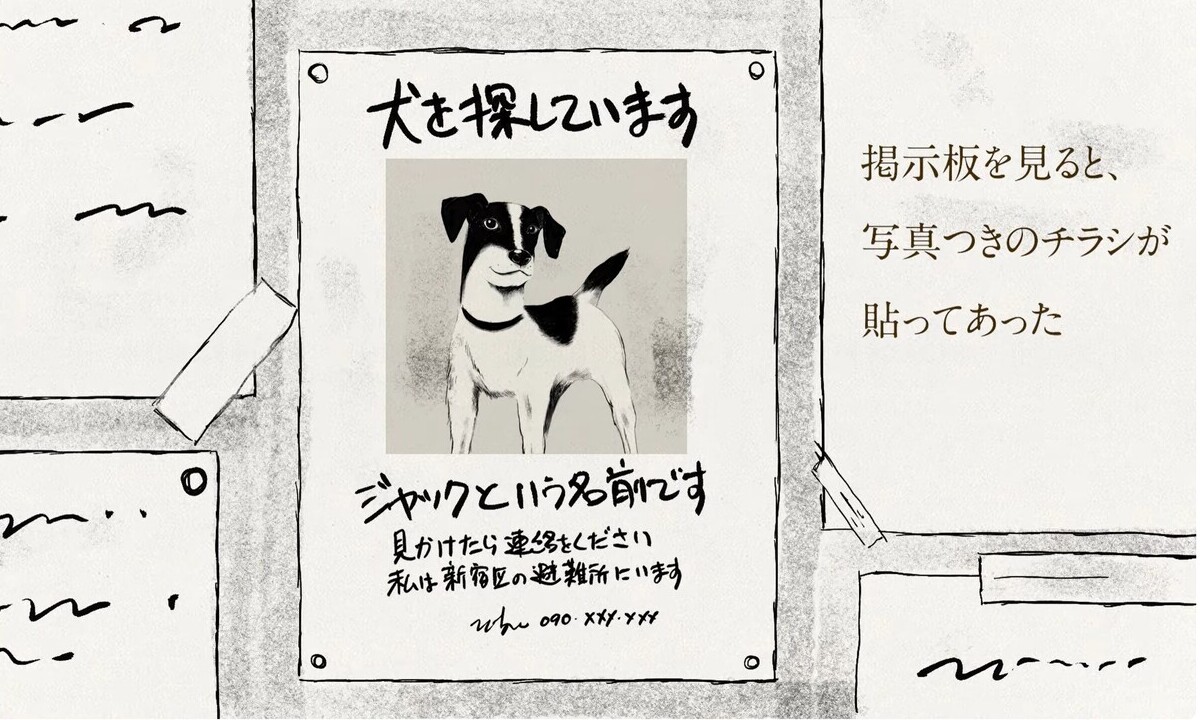 犬を探しています
ジャックという名前です
見かけたら連絡をください
私は新宿区の避難所にいます
090-XXX-XXX
掲示板を見ると、
写真つきのチラシが
貼ってあった